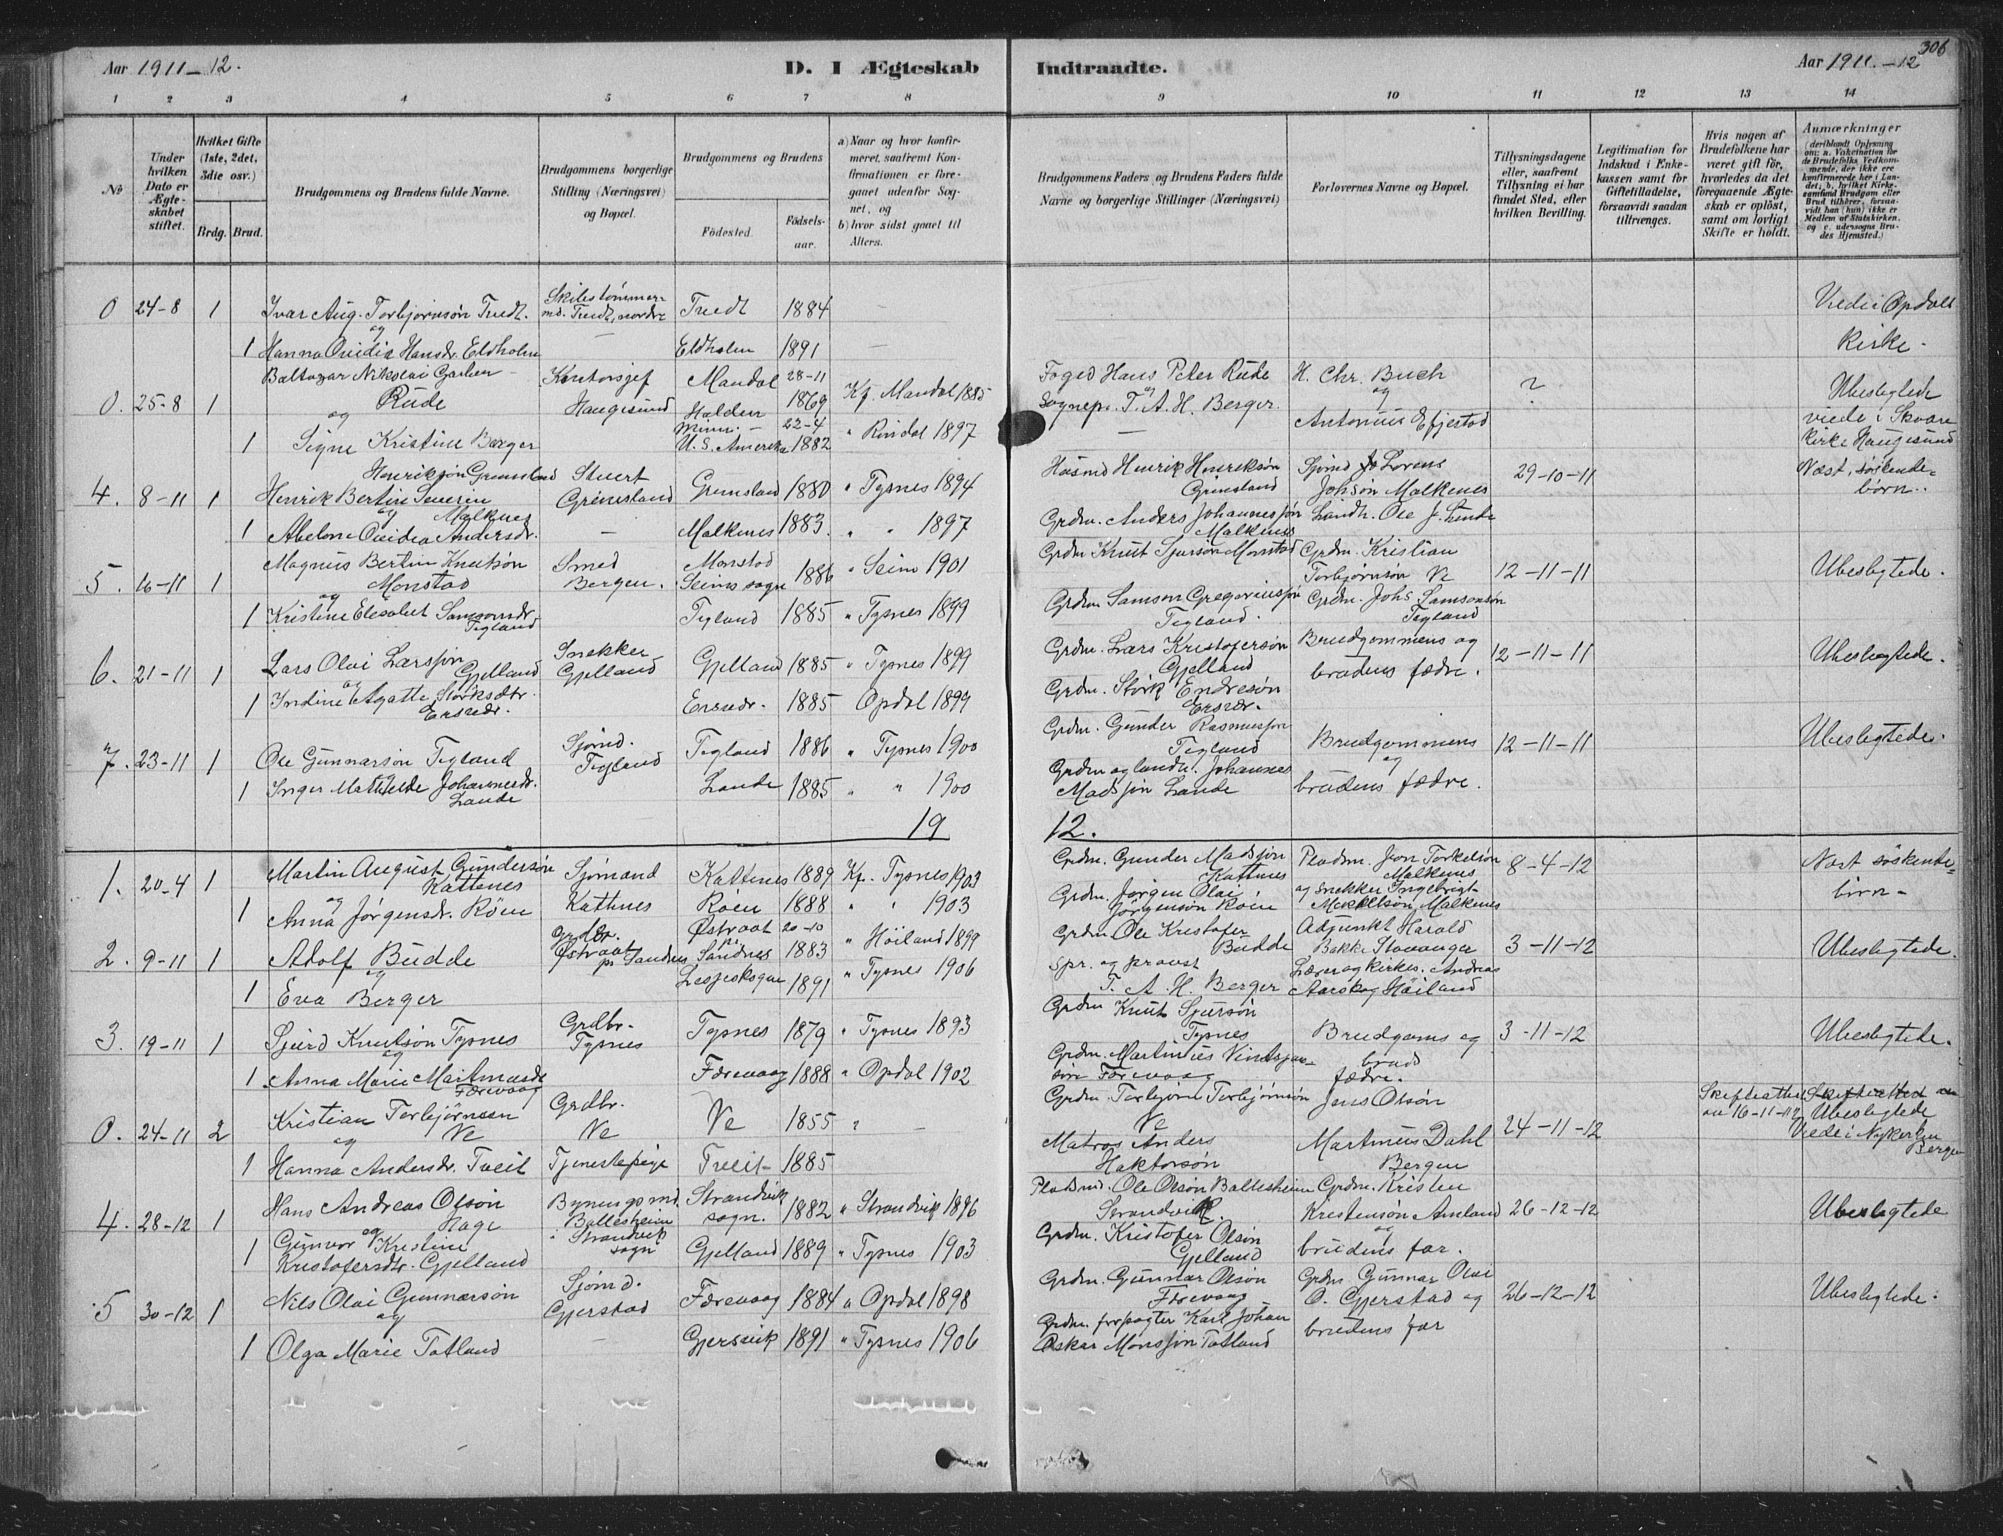 Aar 1911-12.
D. I Ægteskab
Indtraadte.
Aar 1911.-12
306
1 2 3 4 5 6 7 8
9 10 11 12 13 14
No
Under hvilken Dato er Ægteskabet stiftet.
Hvilket Gifte (1ste, 2det, 3die osv.)
Brdg. Brud.
Brudgommens og Brudens fulde Navne.
Brudgommens borgerlige Stilling (Næringsvei) og Bopæl.
Brudgommens og Brudens
Fødested.
Fødsels-aar.
a) Naar og hvor konfirmeret, saafremt Konfirmationen er foregaaet udenfor Sognet, og
b) hvor sidst gaaet til Alters.
Brudgommens Faders og Brudens Faders fulde Navne og borgerlige Stillinger (Næringsvei)
Forlovernes Navne og Bopæl.
Tillysningsdagene eller, saafremt Tillysning ei har fundet Sted, efter hvilken Bevilling.
Legitimation for Indskud i Enkekassen samt for Giftetilladelse, forsaavidt saadan tiltrænges.
Hvis nogen af Brudefolkene har været gift før, hvorledes da det foregaaende Ægteskab er opløst, samt om lovligt Skifte er holdt.
Anmærkninger
(deriblandt Oplysning om: a. Vakcination for de Brudefolks Vedkommende, der ikke ere konfirmerede her i Landet; b. hvilket Kirkesamfund Brudgom eller Brud tilhører, forsaavidt han (hun) ikke er Medlem af Statskirken, og c. udensogns Brudes Hjemsted.)
0 24-8 1 Ivar Aug. Torbjørnsøn Tvedt. Tvedt 1884 Viede i Opdals
og
1 Hanna Ovidia Hansdr. Eldholm Eldholm 1891 Kirke.
0. 25-8 1 Baltazar Nikolai Rude Kontorsjef Haugesund Mandal 28-11 1869 Kf. Mandal 1885 Foged Hans Peter Rude H. Chr. Buch ? Ubeslegtede
og
1 Signe Kristine Berger Halden Minn. U.S. Amerika 22-4 1882 " Rindal 1897 Sognepr. T. A. H. Berger. Antonius Efjestad viede i Skaare Kirke Haugesund
4. 8-11 1 Henrik Bertin Severin Henriksøn Grimsland Stuert Grimsland Grimsland 1880 " Tysnes 1894 Husmd Henrik Henriksøn Grimsland Sjømd Lorens Johsøn Malkenes 29-10-11 Næst. søskendebørn.
og
1 Abelone Ovidia Andersdr. Malkenes - Malkenes 1883. " " 1897 Grdm. Anders Johannesjøn Malkenes Landh. Ole J. Lande
5. 16-11 1 Magnus Bertin Knutsøn Monstad Smed Bergen. Monstad Seims sogn 1886 " Seim 1901 Grdm Knut Sjursøn Monstad Grdm. Kristian Torbjørnsøn Ve 12-11-11 Ubeslegtede.
og
1 Kristine Elisabet Samsonsdr. Tegland Tegland 1885 " Tysnes 1899 Grdm Samson Gregoriusjøn Tegland. Grdm. Johs Samsonsøn Tegland
6. 21-11 1 Lars Olai Larsjøn Gjelland Snekker Gjelland Gjelland 1885 " Tysnes 1899 Grdm. Lars Kristofersøn Gjelland Brudgommens og brudens fædre. 12-11-11 Ubeslegtede.
og
1 Indine Agatte Størksdtr. Ersvær. Ersvær. 1885 Opdal 1899 Grdm. Størk Endresøn Ersvær.
7. 23-11 1 Ole Gunnarsøn Tegland Sjømd. Tegland Tegland 1886 " Tysnes 1900 Grdm. Gunder Rasmusjøn Tegland Brudgommens og brudens fædre. 12-11-11 Ubeslegtede.
1 Inger Mathilde Johannesdr. Lande Lande 1885 " " 1900 Grdm og landh. Johannes Madsjøn Lande
19 12.
1. 20-4 1 Martin August Gundersøn Kattenes Sjømand Kattnes Kattenes 1889 Kf. Tysnes 1903 Grdm. Gunder Madsjøn Kattnes Pladsm. Jon Torkelsøn Malkenes 8-4-12 Næst søskendebørn-
og
1 Anna Jørgensdr. Røen Røen 1888 " " 1903 Grdm. Jørgen Olai Jørgensøn Røen og Snekker Ingebrigt Mikkelsøn Malkenes
2. 9-11 1 Adolf Budde Grdbr. Østraat pr Sandnes Østraat pr Sandnes 20-10 1883 " Høiland 1899 Grdm Ole Kristofer Budde Adjunkt Harald Bakke Stavanger 3-11-12 Ubeslegtede.
og
1 Eva Berger Lesjeskogen 1891 " Tysnes 1906 Spr. og provst T. A. H. Berger Lærer og kirkes. Andreas Aarskog Høiland
3. 19-11 1 Sjurd Knutsøn Tysnes Grdbr. Tysnes Tysnes 1879 " Tysnes 1893 Grdm Knut Sjursøn Tysnes Brudgoms og bruds fædre. 3-11-12 Ubeslegtede.
og
1 Anna Marie Martinusdr. Færevaag Færevaag 1888 " Opdal 1902 Grdm. Martinus Færevaag
0. 24-11 2 Kristian Torbjørnsen Ve Grdbr. Ve Ve 1855 " - Grdm. Torbjørn Torbjørnsøn Ve Jens Olsøn 24-11-12 Skifteattest av 16-11-12 Ubeslegtede
og
1 Hanna Andersdr. Tveit Tjenestepige Tveit 1885 Matros Anders Haktorsøn Martinus Dahl Bergen Viede i Nykirken Bergen
4. 28-12 1 Hans Andreas Olsøn Hage Bygningsmd. Baltesheim i Strandvik sogn Strandvik sogn. 1882 " Strandvik 1896 Pladsmd. Ole Olsøn Baltesheim Strandvik. Grdm. Kristen Kristensøn Amland 26-12-12 Ubeslegtede
og
1 Gunvor Kristine Kristofersdtr. Gjelland Gjelland 1889 " Tysnes 1903 Grdm. Kristofer Olsøn Gjelland og brudens far.
5 30-12 1 Nils Olai Gunnarsøn Sjømd. Gjerstad Færevaag 1884 " Opdal 1898 Grdm. Gunnar Olsøn Færevaag Grdm Gunnar Olai O. Gjerstad og 26-12-12 Ubeslegtede.
og
1 Olga Marie Tatland - Gjersvik 1891 " Tysnes 1906 Grdm. forpagter Karl Johan Oskar Monsjøn Tatland brudens far